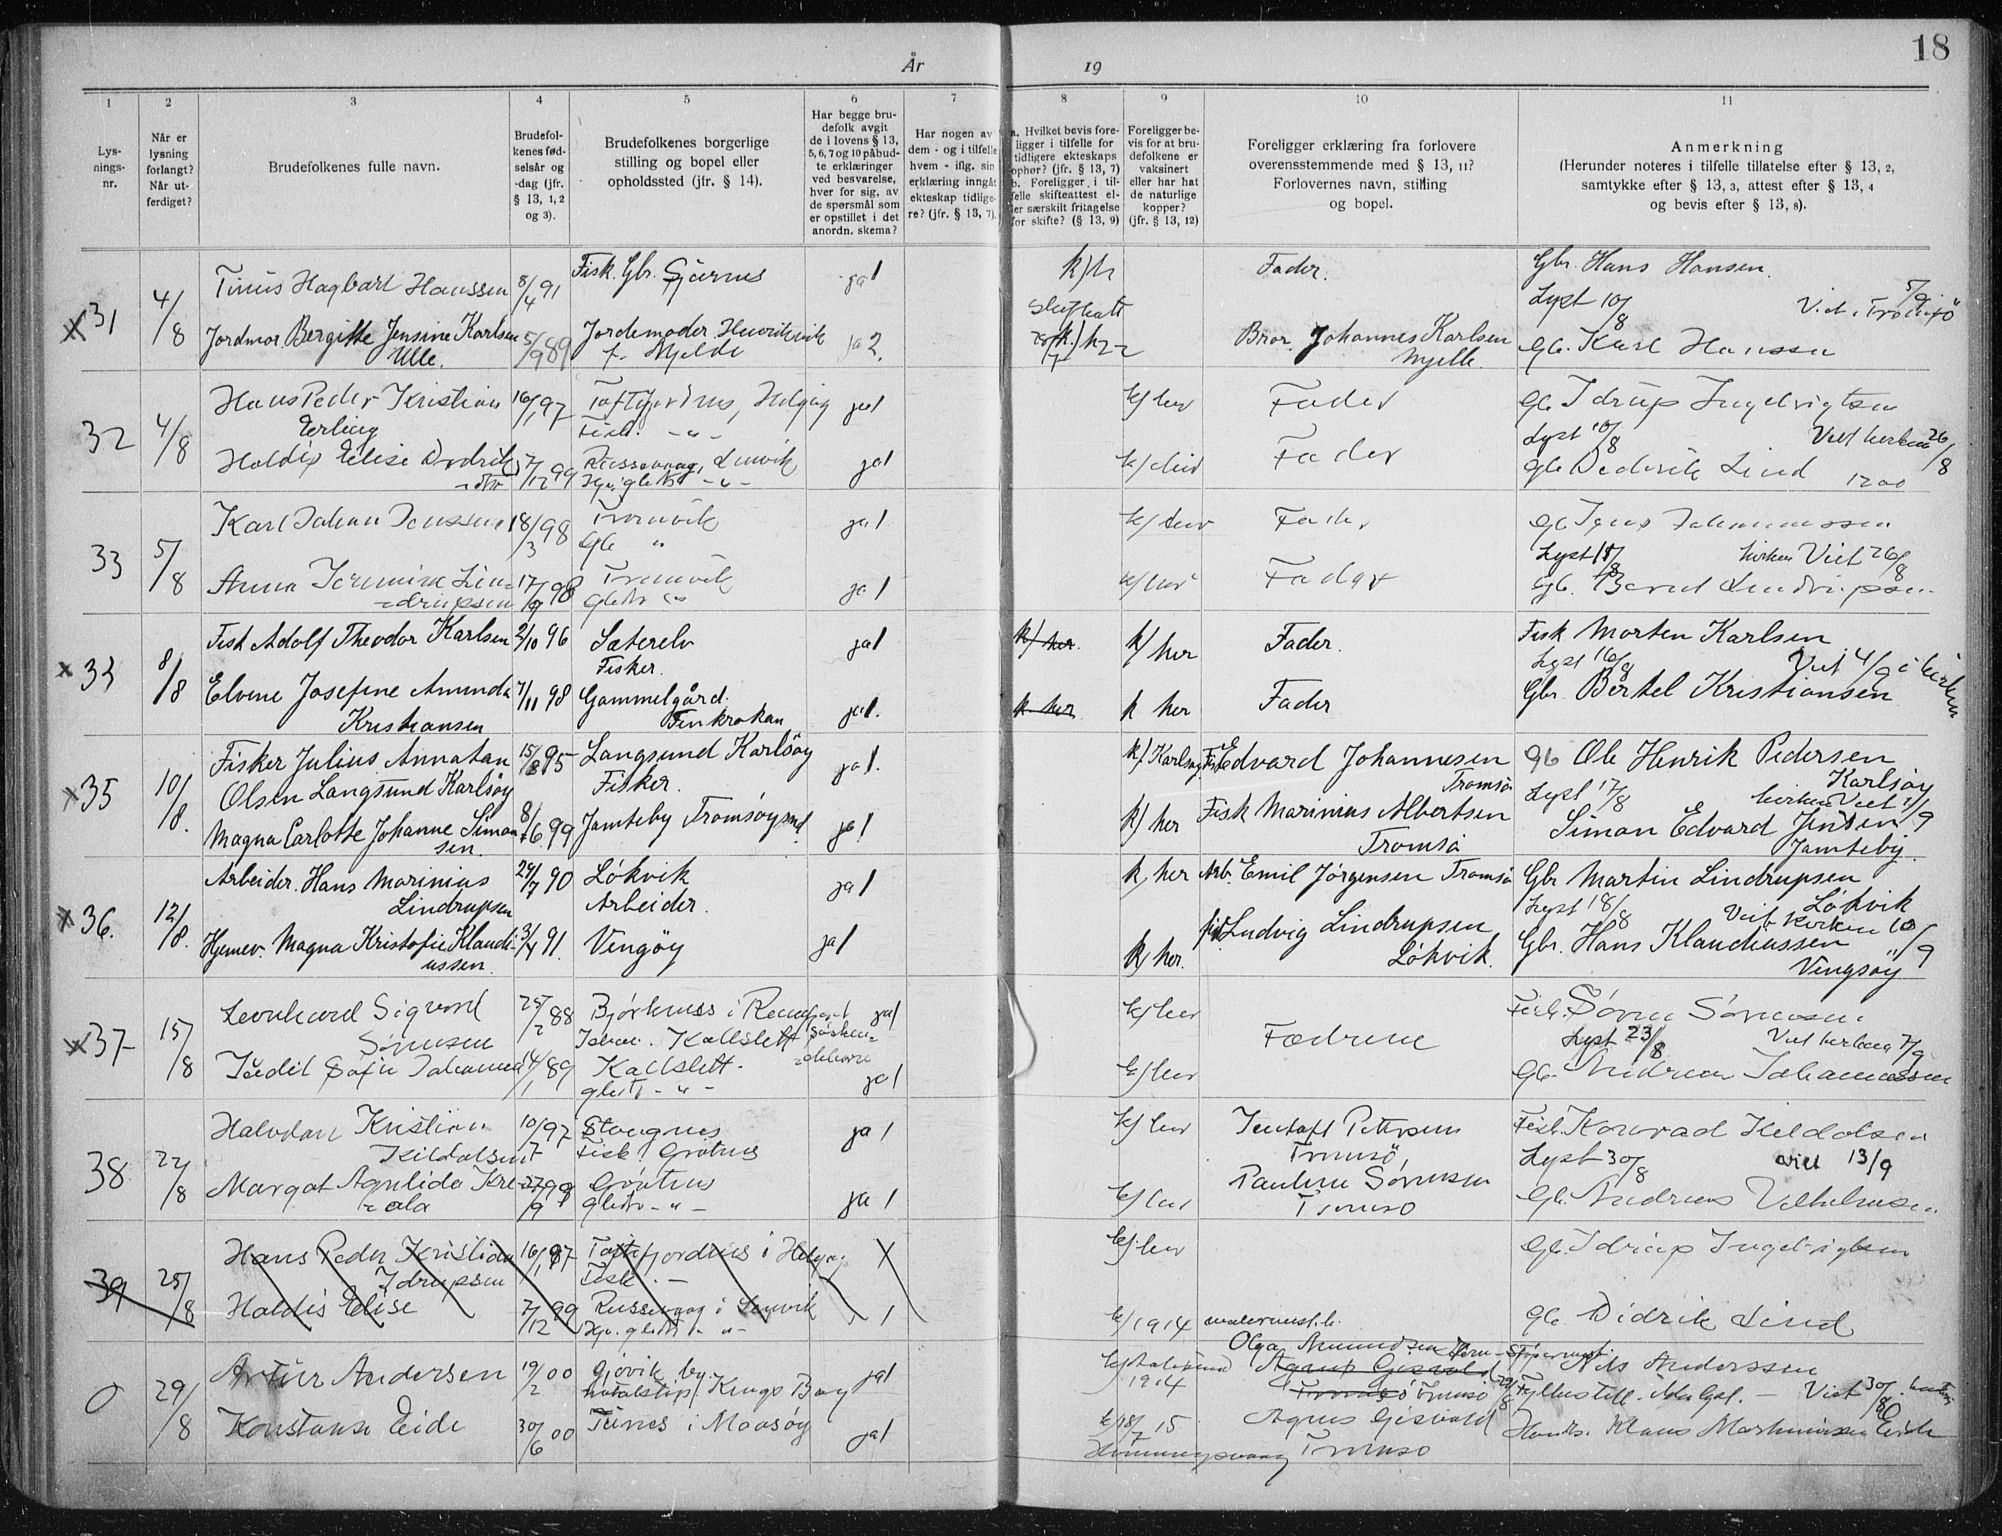 18
År
19
1
2
3
4
5
6
7
8
9
10
11
Lys-
nings-
nr.
Når er
lysning
forlangt?
Når ut-
ferdiget?
Brudefolkenes fulle navn.
Brudefol-
kenes fød-
selsår og
-dag (jfr.
§ 13, 1, 2
og 3).
Brudefolkenes borgerlige
stilling og bopel eller
opholdssted (jfr. § 14).
Har begge bru-
defolk avgit
de i lovens § 13,
5, 6, 7 og 10 påbud-
te erklæringer
ved besvarelse,
hver for sig, av
de spørsmål som
er opstillet i det
anordn. skema?
Har nogen av
dem - og i tilfelle
hvem - iflg. sin
erklæring inngåt
ekteskap tidlige-
re? (jfr. § 13, 7).
a. Hvilket bevis fore-
ligger i tilfelle for
tidligere ekteskaps
ophør? (jfr. § 13, 7)
b. Foreligger i til-
felle skifteattest el-
ler særskilt fritagelse
for skifte? (§ 13, 9)
Foreligger be-
vis for at bru-
defolkene er
vaksinert
eller har hat
de naturlige
kopper?
(jfr. § 13, 12)
Foreligger erklæring fra forlovere
overensstemmende med § 13, 11?
Forlovernes navn, stilling
og bopel.
Anmerkning
(Herunder noteres i tilfelle tillatelse efter § 13, 2,
samtykke efter § 13, 3, attest efter § 13, 4
og bevis efter § 13, 8).
x 31 4/8 Tinus Hagbart Hanssen 8/4 91 Fisk. Gbr. ja 1 k/h Fader. Gbr. Hans Hansen.
Lyst 10/8 Viet i Tromsö 5/9
Jordmor. Bergitte Jensine Karlsen 5/9 89 Jordemoder ja 2. Bror. Johannes Karlsen Gb. Karl Hanssen
Ulle. Mjelle.
32 4/8 Hans Peder Kristian 16/1 97 Toftefjordnes, Helgøy ja 1 k/her Fader Gb. Idrup Ingebrigtsen
Erling Fisk. -"- Lyst 10/8 Viet kirken 26/8
Haldis Elise Didrik- 7/12 99 Russevaag, Lenvik ja 1 Fader Gb. Dederik Lind
sdtr Hjv. gbdtr -"- 1200
33 5/8 Karl Johan Jenssen 18/3 98 Tromvik ja 1 k/her Fader Gb. Jens Johannessen
Gb " Lyst 15/8 kirken Viet 26/8
Anna Jermine Lin- 17/9 98 Tromvik ja 1 k/her Fader Gb. Bernt Lindrupsen
drupsen gbdtr "
x 33 8/8 Fisk Adolf Theodor Karlsen 2/10 96 Sæterelv ja 1 k/ her. k/ her Fader. Fisk Morten Karlsen
Fisker. Lyst 16/8 Viet 4/9 i kirken
Elvine Josefine Aminda 7/11 98 Gammelgård. ja 1. k. her k her Fader Gbr Bertel Kristiansen
Kristiansen Finkroken
x 35 10/8. Fisker Julius Annatan 15/8 95 Langsund Karlsöy ja 1. k/. Karlsöy Fisk Edvard Johannesen Gb Ole Henrik Pedersen
Olsen Langsund Karlsöy Fisker. Tromsö Karlsöy
Lyst 17/8 kirken Viet 1/9
Magna Carlotte Johanne Simon- 8/6 99 Jamteby Tromsöysund ja 1 k/ her Fisk Marinius Albertsen Simon Edvard Jensen
sen. Tromsö Jamteby.
x 36. 12/8. Arbeider. Hans Marinius 29/7 90 Løkvik ja 1 k, her Arb. Emil Jørgensen Tromsö Gbr Martin Lindrupsen
Lindrupsen Arbeider. Løkvik
Lyst 18/8 Viet kirken 10/9
Hjemv. Magna Kristofie Klaudi- 3/4 91. Vengöy ja 1 k, her. fisk Ludvig Lindrupsen Gbr. Hans Klaudiussen
ussen. Løkvik. Vengsöy
x 37 15/8 Leonhard Sigvard 25/2 88 Bjørknes i ja 1 k/her Fisk. Søren Sørensen
Sørensen Kallslett søsken- Fædrene Lyst 23/8 Viet kirken 7/9
Judit Sofie Johannes 14/1 89 Kallslett. ja 1 k/her Gb. Andreas Johannessen
gbdtr -"-
38 22/8 Halvdan Kristian 10/7 97 Stongnes ja 1 k/her Jentoft Petersen Fisk. Konrad Kildalsen
Kildalsen Fisk. Grøtnes Tromsö, Lyst 30/8 viet 13/9
Margot Agnlida Kre- 27/9 99 Grøtnes ja 1 k/her Pauline Sørensen Gb. Andreas Vilhelmsen
gbdtr -"- Tromsö
39 25/8 Hans Peder Kristian 16/1 97 Toftefjordnes i Helgøy k/her Gb. Idrup Ingebrigtsen
Idrupsen Fisk. -
Haldis Elise 7/12 99 Russevaag i Lenvik 1 k/ 1914 Gb. Didrik Lind
Hjv. gbdtr -"-
0 29/8 Artur Andersen 19/2 00 Gjøvik by. ja 1 1914 Olga Amundsen Nils Anderssen
Kings Bay Agnes Gisvold Tromsö Viet 30/8
Konstanse Eide 30/6 00 Tunes i Maasøy ja 1 k/ 18/7 15 Agnes Gisvold Klaus Martinusen Eide
Honningsvaag Tromsö